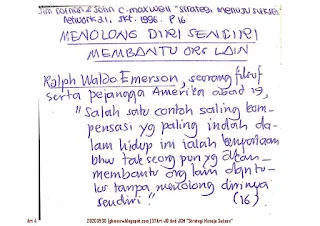 Jim Dornan & John C. Maxwell "Strategi Menuju Sukses
Network 21, Jkt. 1996. P 16
MENOLONG DIRI SENDIRI
MEMBANTU ORG LAIN
Ralph Waldo Emerson, seorang filsuf
serta pejangga Amerika abad 19,
"Salah satu contoh saling kom-
pensasi yg paling indah da-
lam hidup ini ialah kenyataan
bhw tak seorang pun yg akan
membantu org lain dgn tu-
lus tanpa menolong dirinya
sendiri". (16)
Art 4
20200530 (gkmin.net.blogspot.com)
JD And JCM "Strategi Menuju Sukses"